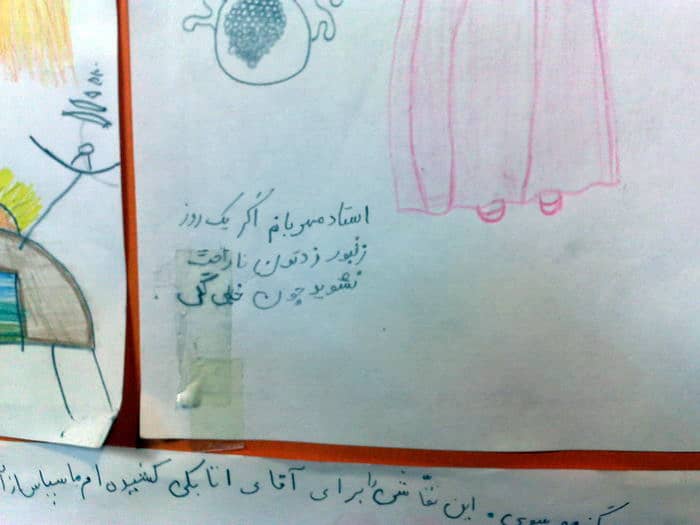 استاد مهربانم اگر یک روز
زنبور زدتون ناراحت
نشوید چون خیلی گلی
این نقاشی را برای آقای اتابکی کشیده ام با سپاس از